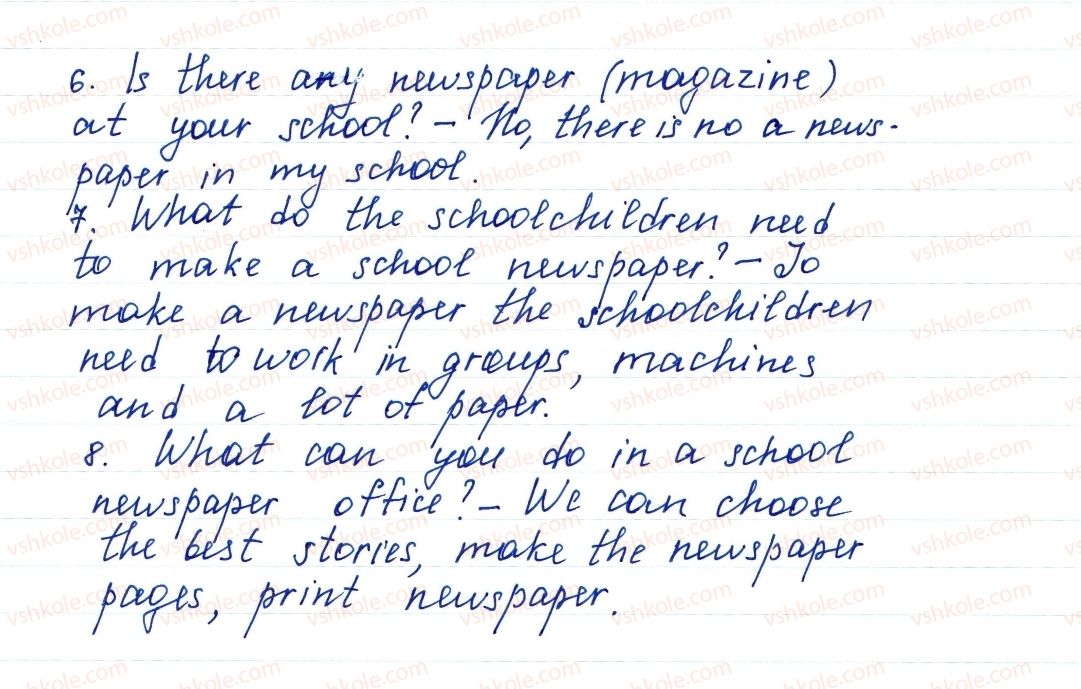 6. Is there any newspaper (magazine)
at your school? – No, there is no a news-
paper in my school.
7. What do the schoolchildren need
to make a school newspaper? – To
make a newspaper the schoolchildren
need to work in groups, machines
and a lot of paper.
8. What can you do in a school
newspaper office? – We can choose
the best stories, make the newspaper
pages, print newspaper.